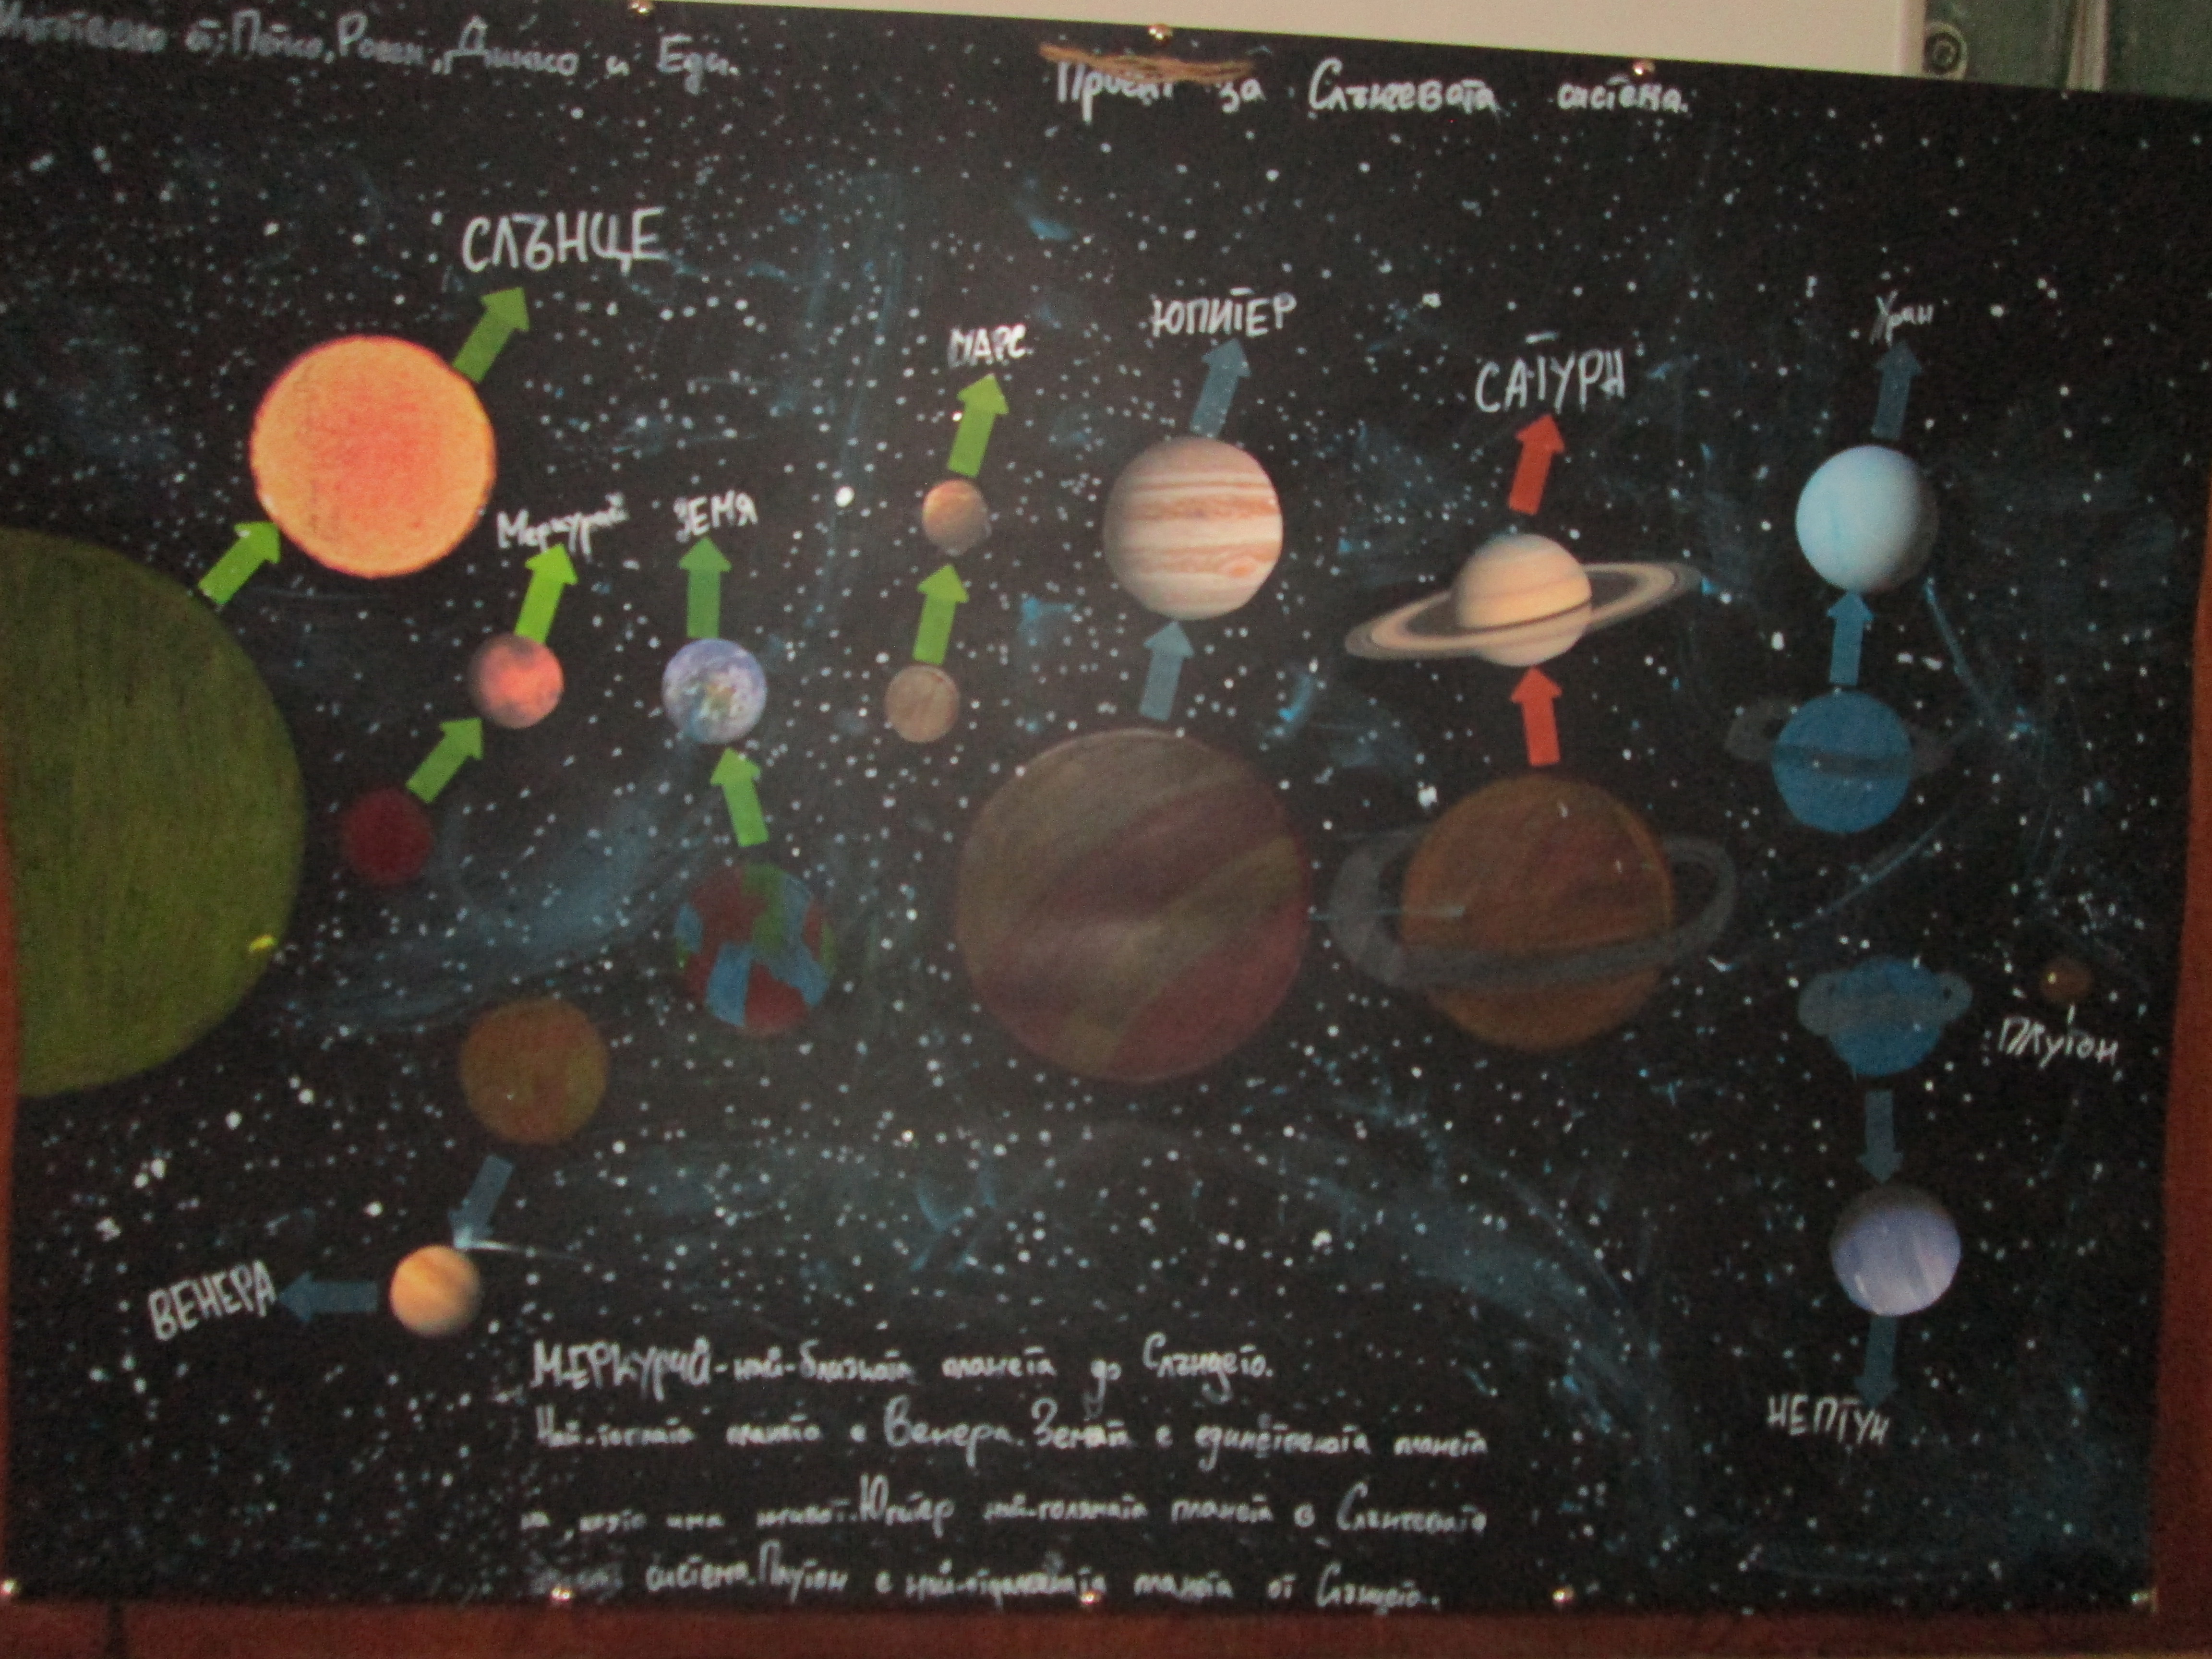 Изготвено от: Петко, Росен, Динко и Еди.
Проект за Слънчевата система.
СЛЪНЦЕ
Меркурий
ЗЕМЯ
МАРС
ЮПИТЕР
САТУРН
Уран
ПЛУТОН
ВЕНЕРА
НЕПТУН
МЕРКУРИЙ-най-близката планета до Слънцето.
Най-топлата планета е Венера. Земята е единствената планета
на, която има живот. Юпитер най-голямата планета в Слънчевата
система. Плутон е най-отдалечената планета от Слънцето.